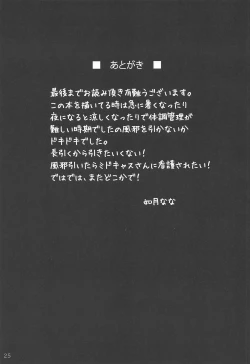 ■ あとがき ■
最後までお読み頂き有難うございます。
この本を描いてる時は急に暑くなったり
夜になると涼しくなったりで体調管理が
難しい時期でしたの風邪を引かないか
ドキドキでした。
長引くから引きたくない!
風邪引いたらミドキャスさんに看護されたい!
ではでは、またどこかで!
如月なな
25